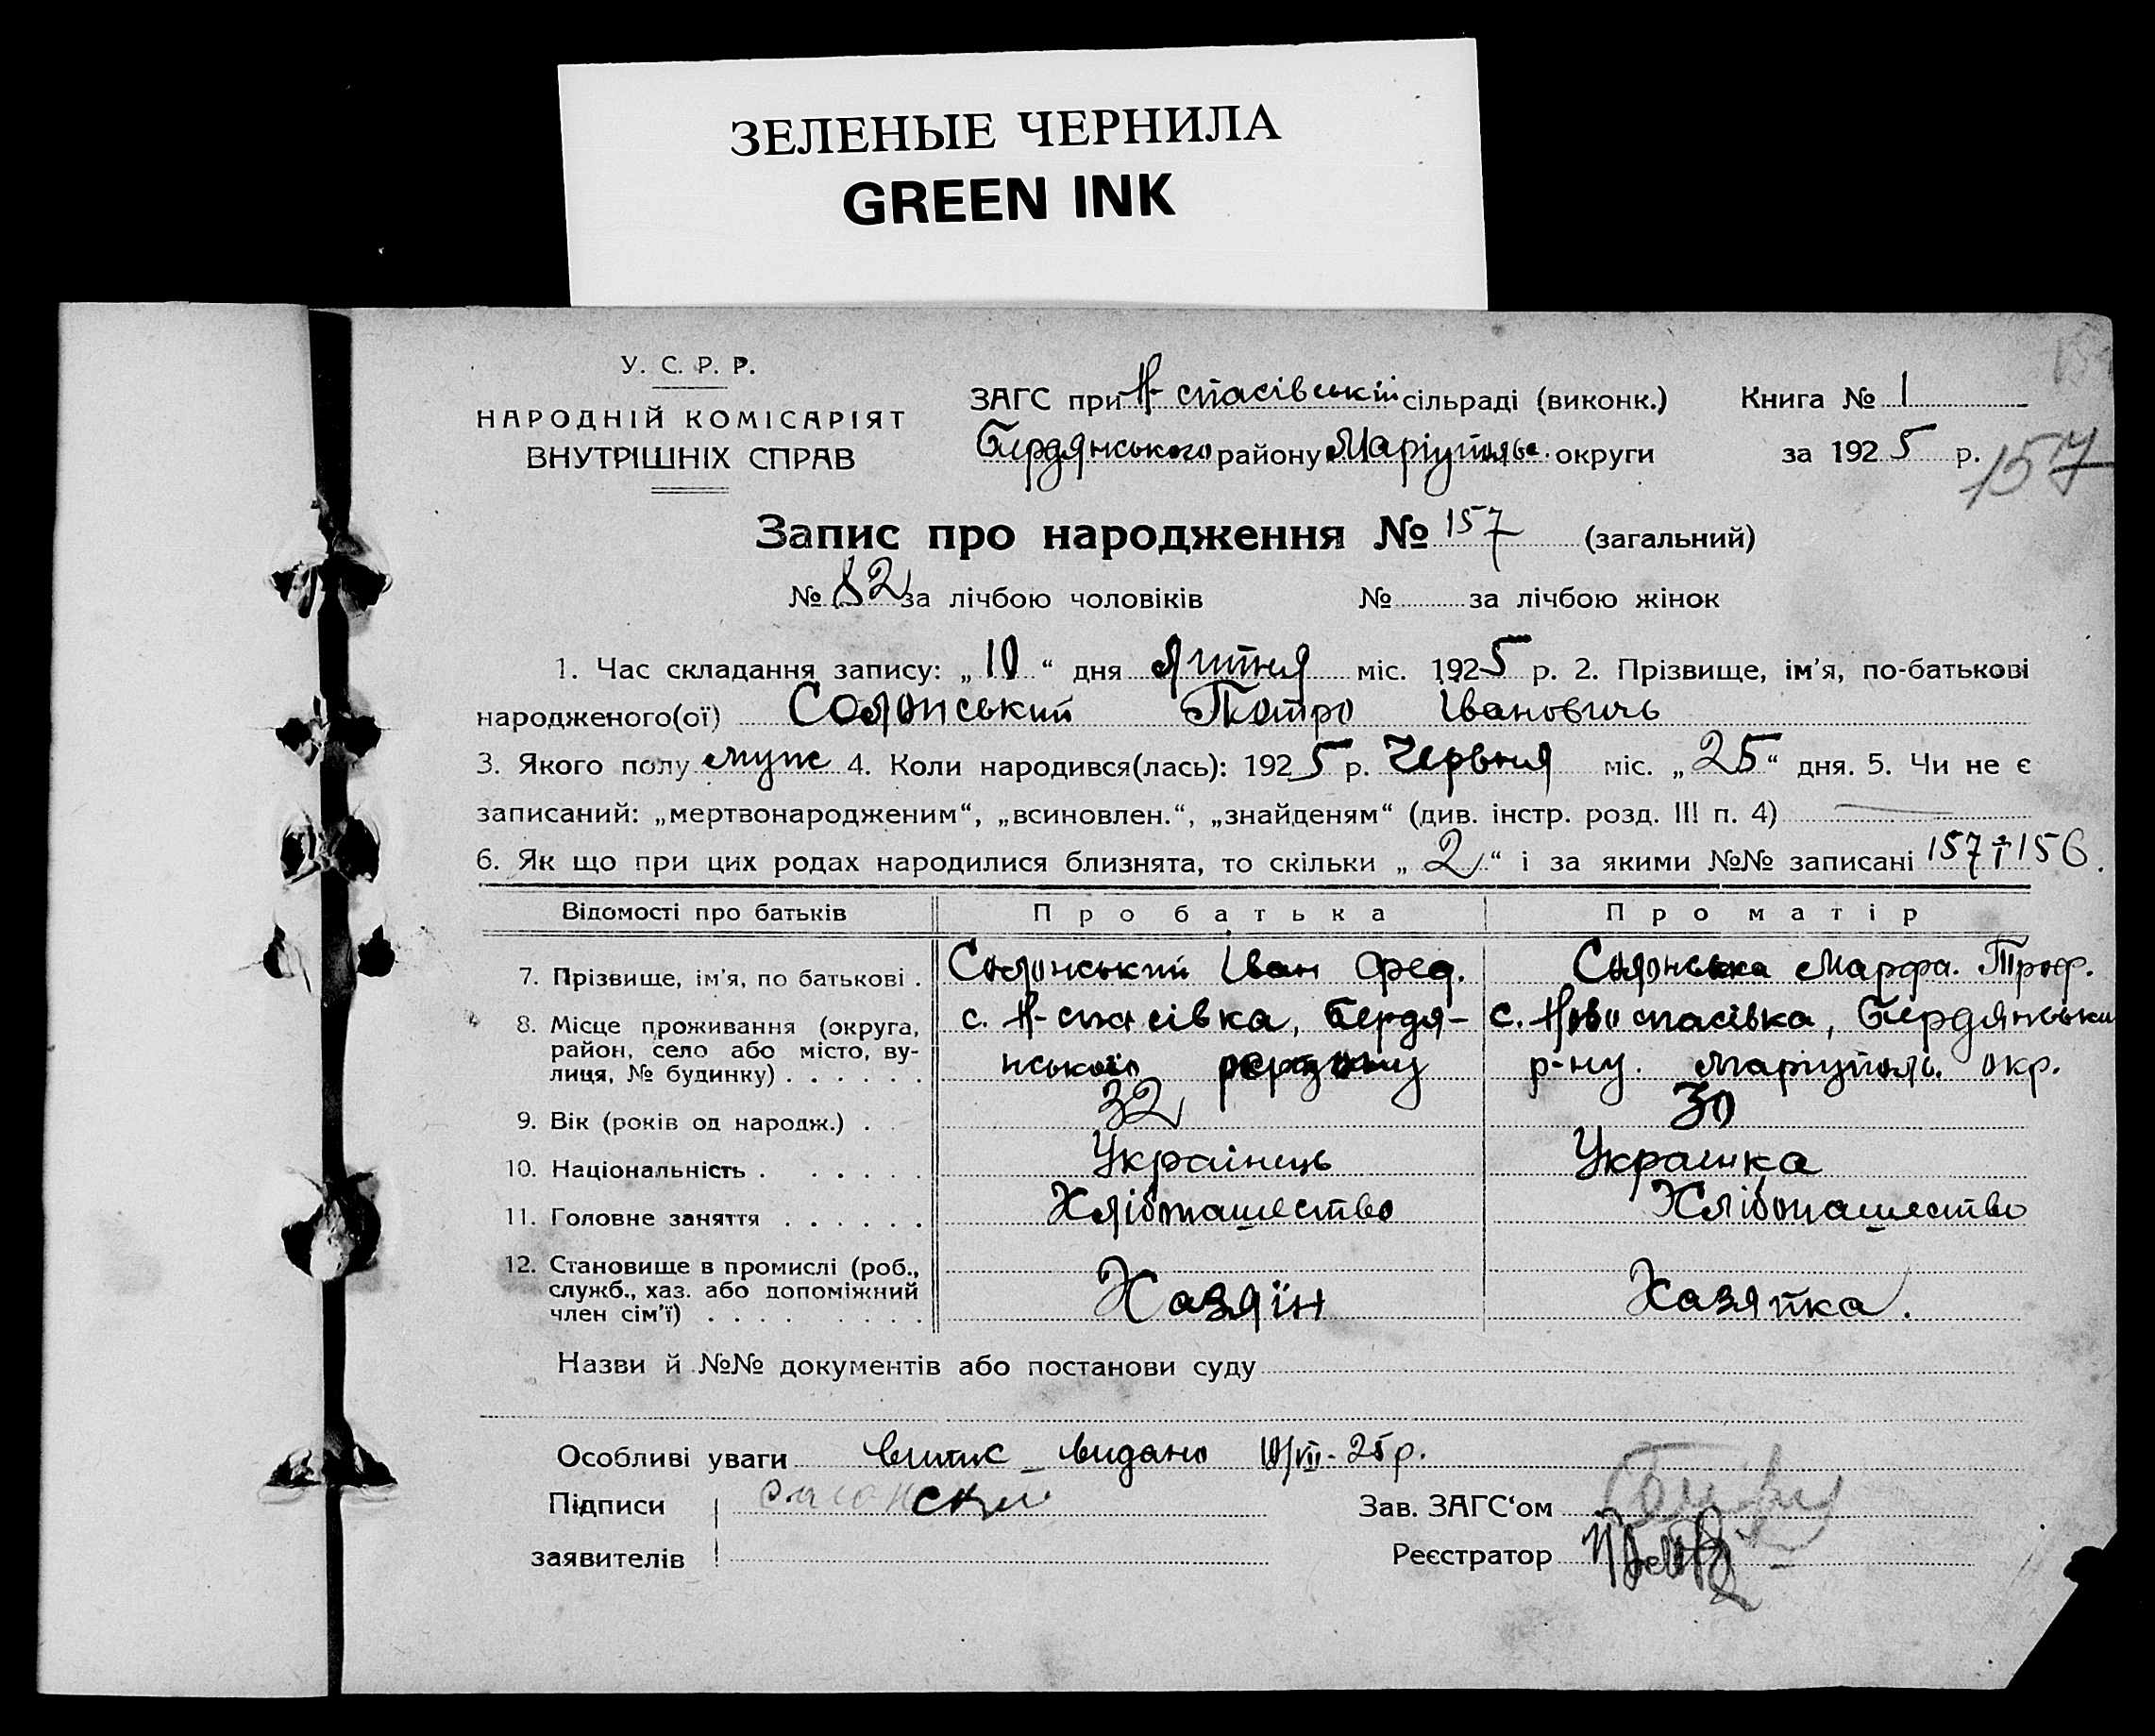 ЗЕЛЕНЫЕ ЧЕРНИЛА
GREEN INK
У. С. Р. Р.
НАРОДНІЙ КОМІСАРІЯТ
ВНУТРІШНІХ СПРАВ
ЗАГС при Н-спасівській сільраді (виконк.) Книга № 1
Бердянського району Маріупольс. округи за 1925 р.
157
Запис про народження № 157 (загальний)
№ 82 за лічбою чоловіків № за лічбою жінок
1. Час складання запису: „10“ дня липня міс. 1925 р. 2. Прізвище, ім'я, по-батькові
народженого(ої) Солонський Потро Івановичь
3. Якого полу муж 4. Коли народився(лась): 1925 р. Червня міс. „25“ дня. 5. Чи не є
записаний: „мертвонародженим“, „всиновлен.“, „знайденям“ (див. інстр. розд. III п. 4)
6. Як що при цих родах народилися близнята, то скільки „2“ і за якими №№ записані 157 і 156.
Відомості про батьків Про батька Про матір
7. Прізвище, ім'я, по батькові . Солонський Іван Фед. Солонська Марфа. Троф.
8. Місце проживання (округа, с. Н-спасівка, Бердя- с. Ново спасівка, Бердянськ
район, село або місто, ву-
лиця, № будинку) . . . . . . нського району р-ну. Маріуполь. окр.
9. Вік (років од народж.) . 32 30
10. Національність . . . . . . Українець Украінка
11. Головне заняття . . . . . . Хлібопашество Хлібопашество
12. Становище в промислі (роб.,
служб., хаз. або допоміжний Хазяїн Хазяйка.
член сім'ї) . . . . . . . .
Назви й №№ документів або постанови суду
Особливі уваги випис видано 10/VII-25 р.
Підписи Солонский Зав. ЗАГС'ом
заявителів Реєстратор